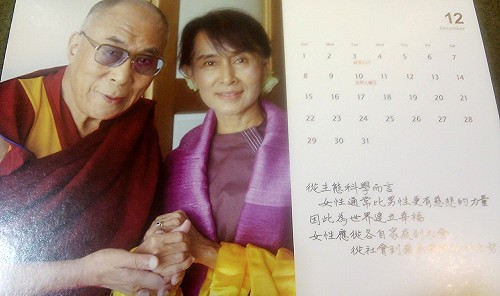 12
December
1 2 3 4 5 6 7
8 9 10 11 12 13 14
15 16 17 18 19 20 21
22 23 24 25 26 27 28
29 30 31
從生態科學而言
女性通常比男性更有慈悲的力量
因此為世界建立幸福
女性應從各自家庭到社會
從社會到